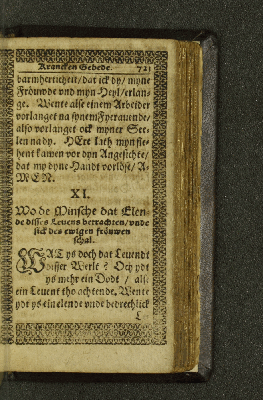 Krancken Gebede. 721
barmherticheit/ dat ick dy/ myne
Fröuwde vnd myn Heyl/ erlan-
ge. Wente alse einem Arbeider
vorlanget na synem Fyrauende/
also vorlanget ock myner See-
len na dy. HErr lath myn fle-
hent kamen vor dyn Angesichte/
dat my dyne Handt vorlöse/ A-
MEN.
XI.
Wo de Minsche dat Elen-
de disses Leuens betrachten/ vnde
sick des ewigen fröuwen
schal.
WAT ys doch dat Leuendt
disser Werlt? Och ydt
ys mehr ein Dodt / alse
ein Leuent tho achtende. Wente
ydt ys ein elende vnde bedrechlick